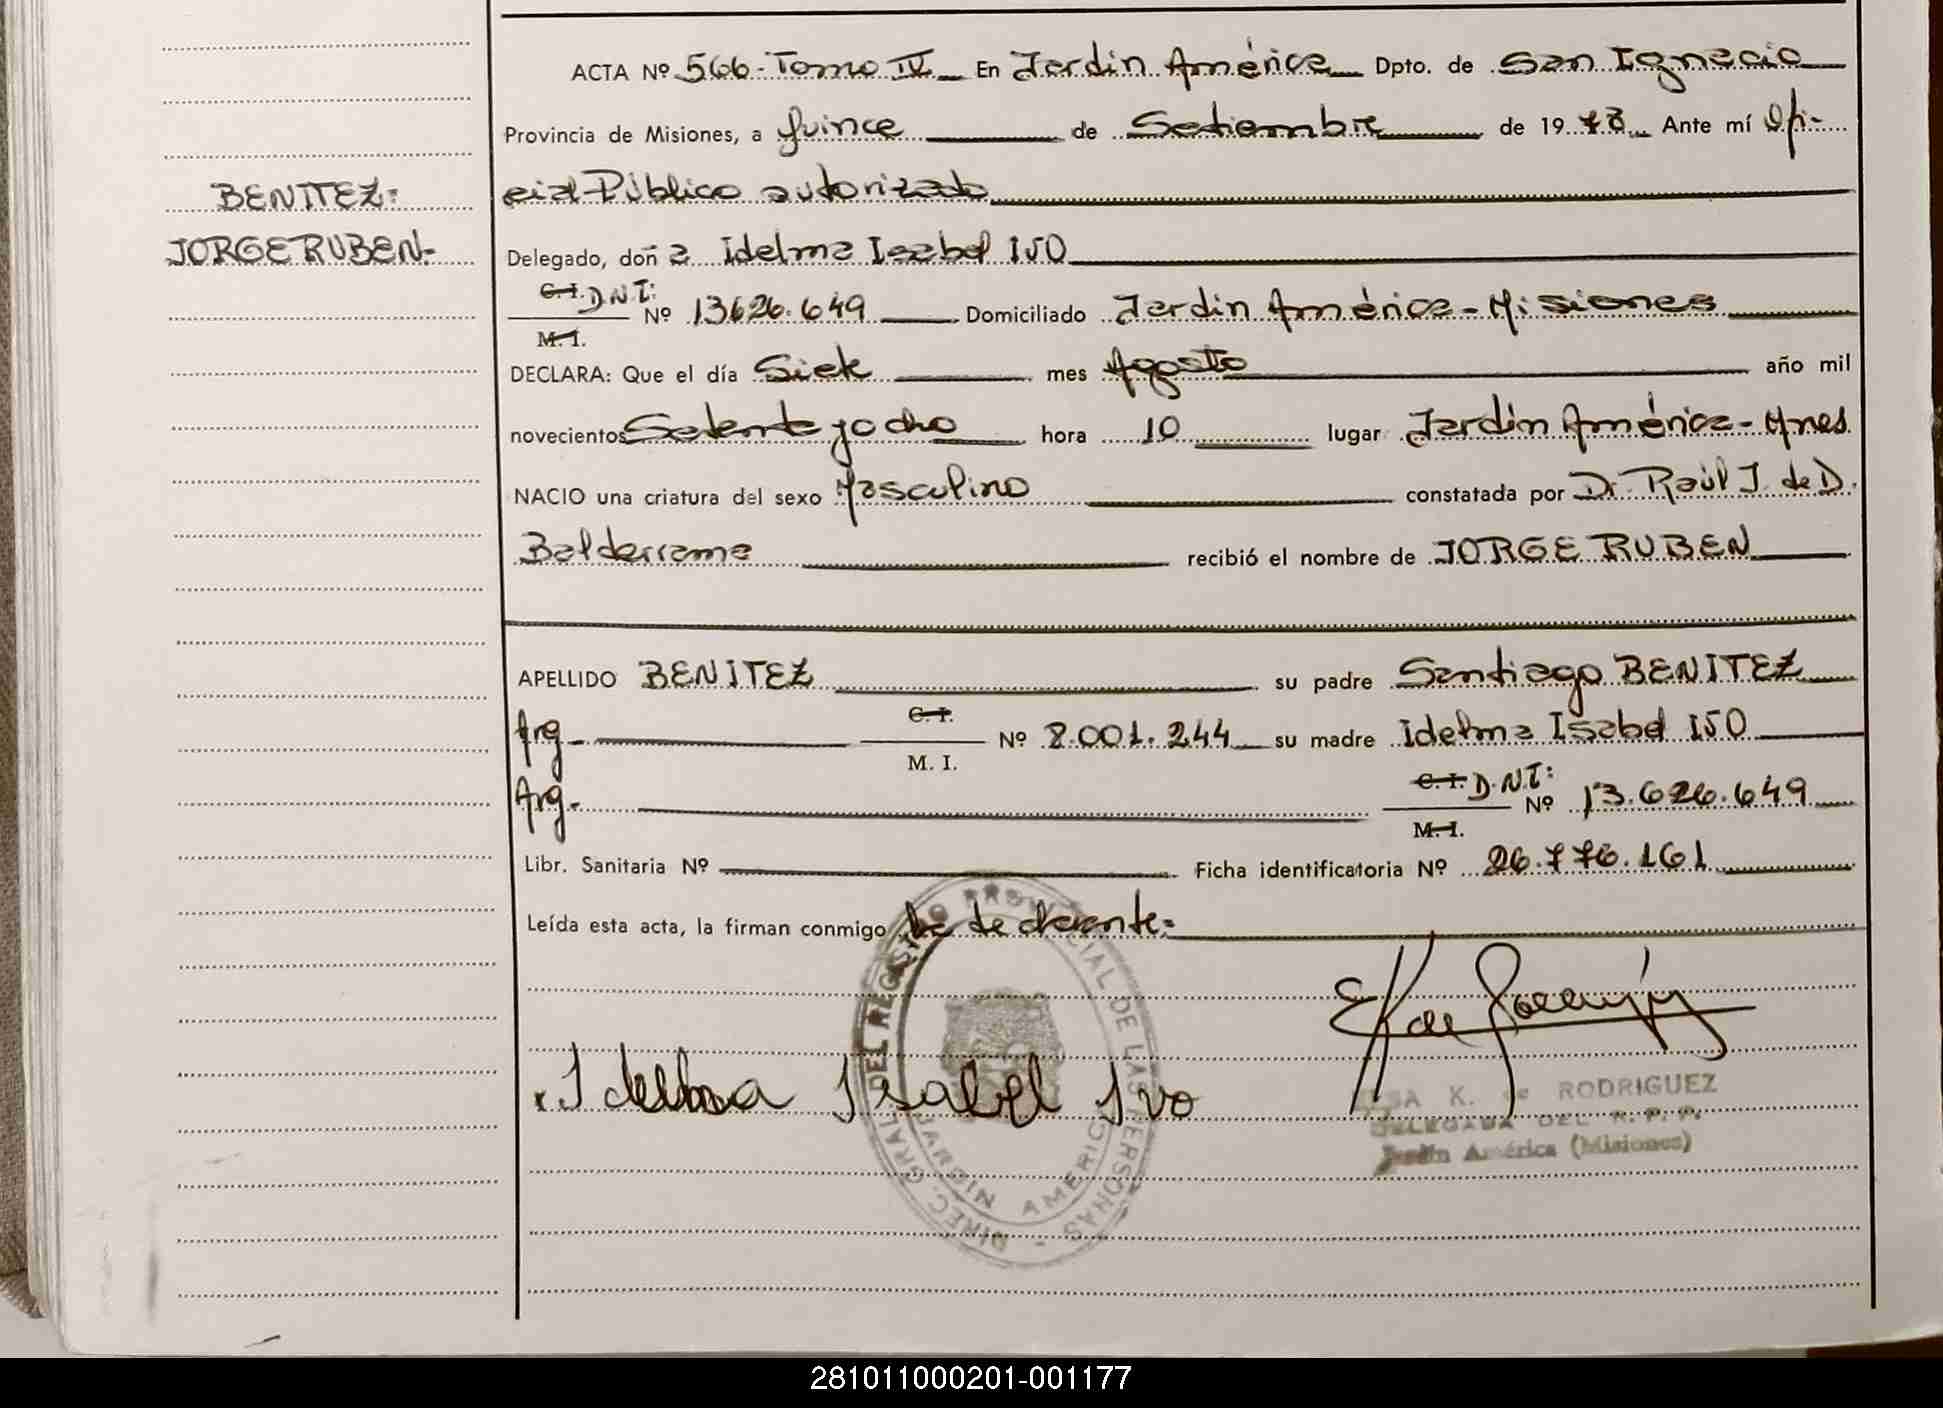 ACTA Nº 566-Tomo IV En Jardin América Dpto. de San Ignacio
Provincia de Misiones, a quince de Setiembre de 19 78 Ante mí Ofi-
BENITEZ: cial Público autorizado
JORGE RUBEN- Delegado, doñ a Idelma Isabel IVO
C.I. D.N.I: M.I. Nº 13626.649 Domiciliado Jardin América - Misiones
DECLARA: Que el día Siete mes Agosto año mil
novecientos Setenta y ocho hora 10 lugar Jardin América - Mnes.
NACIO una criatura del sexo Masculino constatada por Dr. Raúl J. de D.
Balderrama recibió el nombre de JORGE RUBEN
APELLIDO BENITEZ su padre Santiago BENITEZ
Arg- C.I. M.I. Nº 8.001.244 su madre Idelma Isabel IVO
Arg- C.I. D.N.I: M.I. Nº 13.626.649
Libr. Sanitaria Nº Ficha identificatoria Nº 26.776.161
Leída esta acta, la firman conmigo la declarante-
Idelma Isabel Ivo
DIREC. GRAL. DEL REGISTRO PROVINCIAL DE LAS PERSONAS -
JARDIN AMERICA
K. de RODRIGUEZ
DELEGADA DEL R. P. P.
Jardín América (Misiones)
281011000201-001177